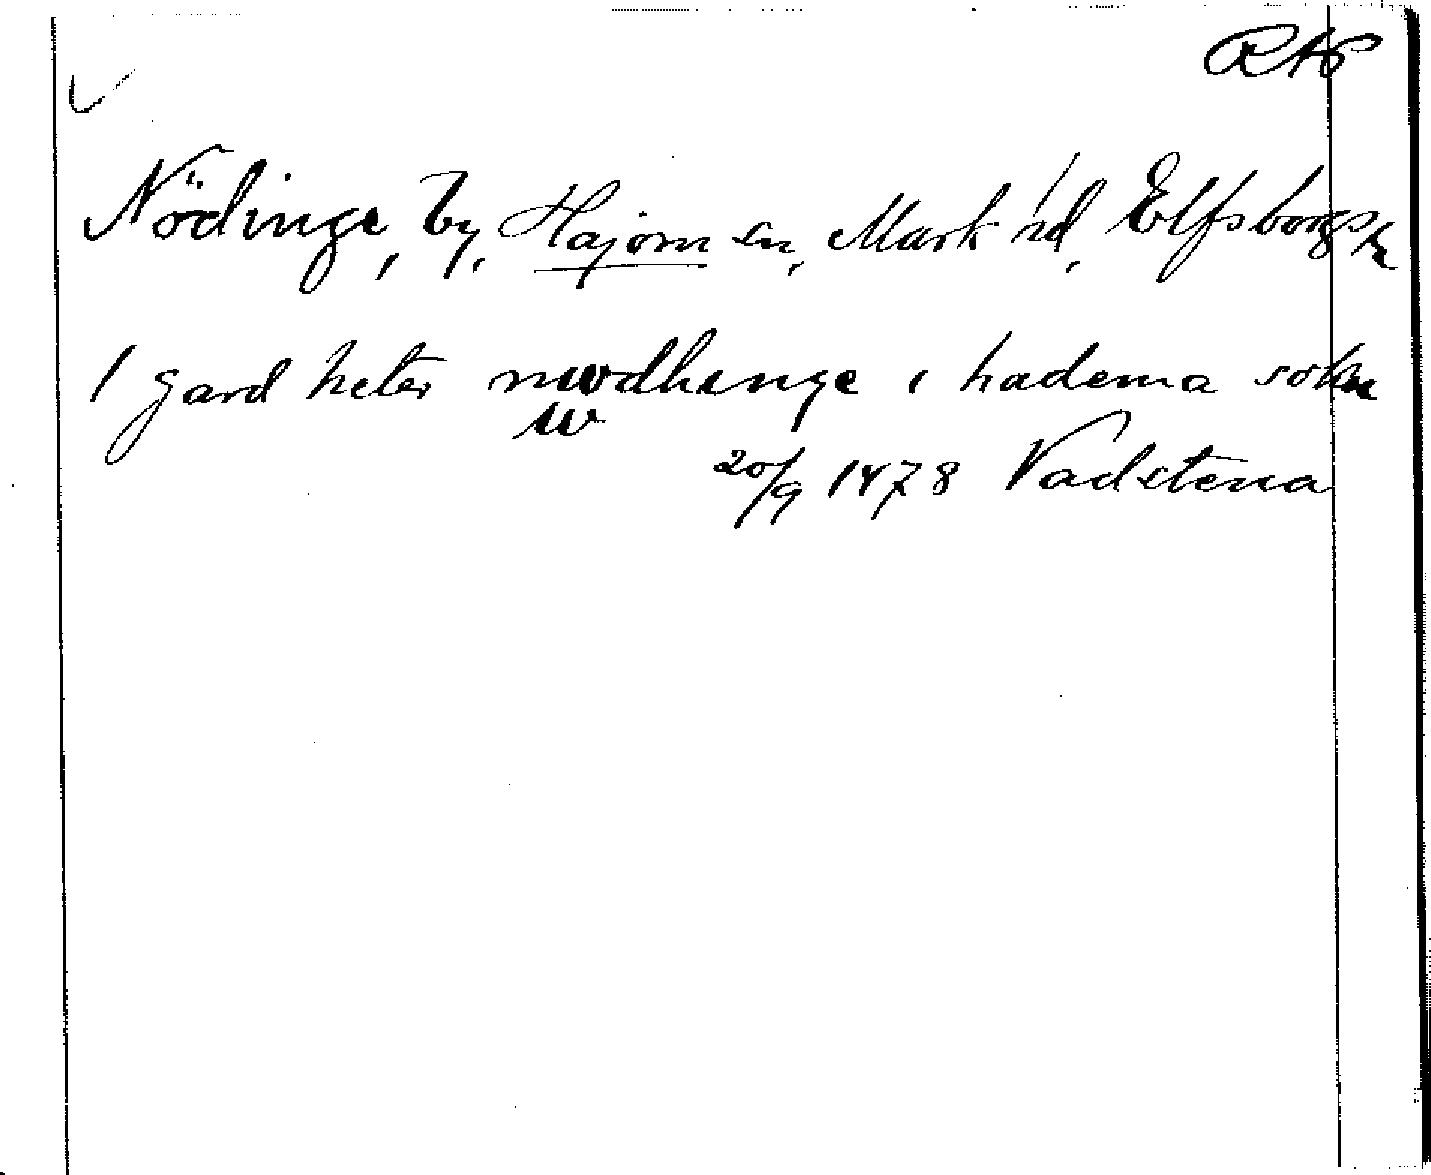 RAP
Nödinge, by, Hajom sn, Mark hd, Elfsborgs l.
1 gard heter nwdhenge i hadema sokn
w
20/9 1478 Vadstena